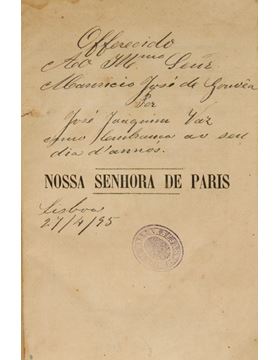 Offerecido
Ao Illmo Senr
Mauricio José de Gouvêa
Por
José Joaquim Vaz
como lembrança ao seu
dia d'annos.
NOSSA SENHORA DE PARIS
Lisboa
27/4/95